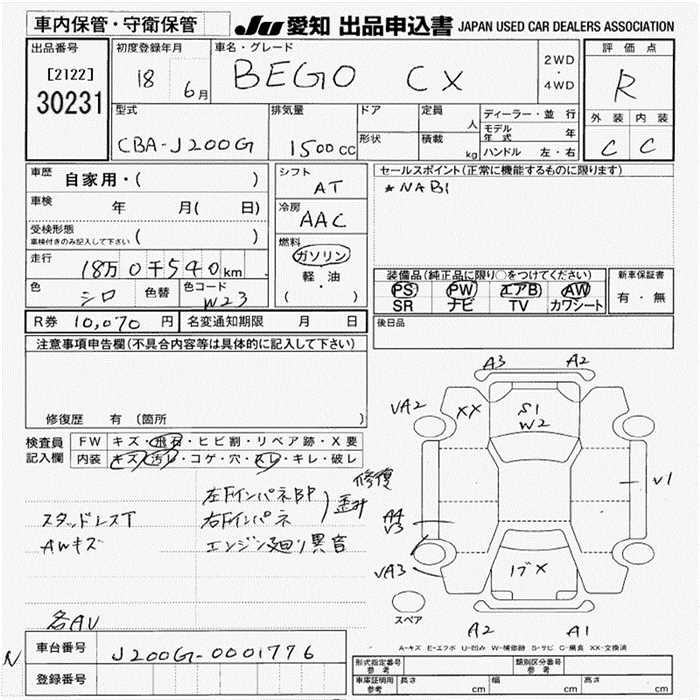 車内保管・守衛保管 JU 愛知 出品申込書 JAPAN USED CAR DEALERS ASSOCIATION
出品番号 初度登録年月 車名・グレード 評価点
[2122] 18 6月 BEGO CX 2WD・4WD R
30231 型式 排気量 ドア 定員 人 ディーラー・並行 外装 内装
CBA-J200G 1500cc 形状 積載 kg モデル年式 年 C C
ハンドル 左・右
車歴 自家用・( ) シフト AT セールスポイント(正常に機能するものに限ります)
車検 年 月( 日) 冷房 AAC *NABI
受検形態 車検付きのみ記入して下さい ( ) 燃料
走行 18万0千540km ガソリン 装備品(純正品に限り○をつけてください) 新車保証書
色 シロ 色替 色コード W23 軽・油 PS PW エアB AW 有・無
( ) SR ナビ TV カワシート
R券 10,070円 名変通知期限 月 日 後日品
注意事項申告欄(不具合内容等は具体的に記入して下さい)
修復歴 有 〔箇所 〕
検査員 FW キズ・飛石・ヒビ割・リペア跡・X要
記入欄 内装 キズ・汚レ・コゲ・穴・スレ・キレ・破レ
A3 A2
VA2 XX S1
W2
V1
A4
V3
VA3
A2 A1
スペア
左Fインパネ BP
スタッドレスT 右Fインパネ 修復 歪み
AWキズ エンジン廻り異音
各AU
A-キズ E-エクボ U-凹み W-補修跡 S-サビ C-腐食 XX-交換済
N 車台番号 J200G-0001776
登録番号
形式指定番号 参考 類別区分番号 参考
車庫証明用 参考 長さ cm 幅 cm 高さ cm